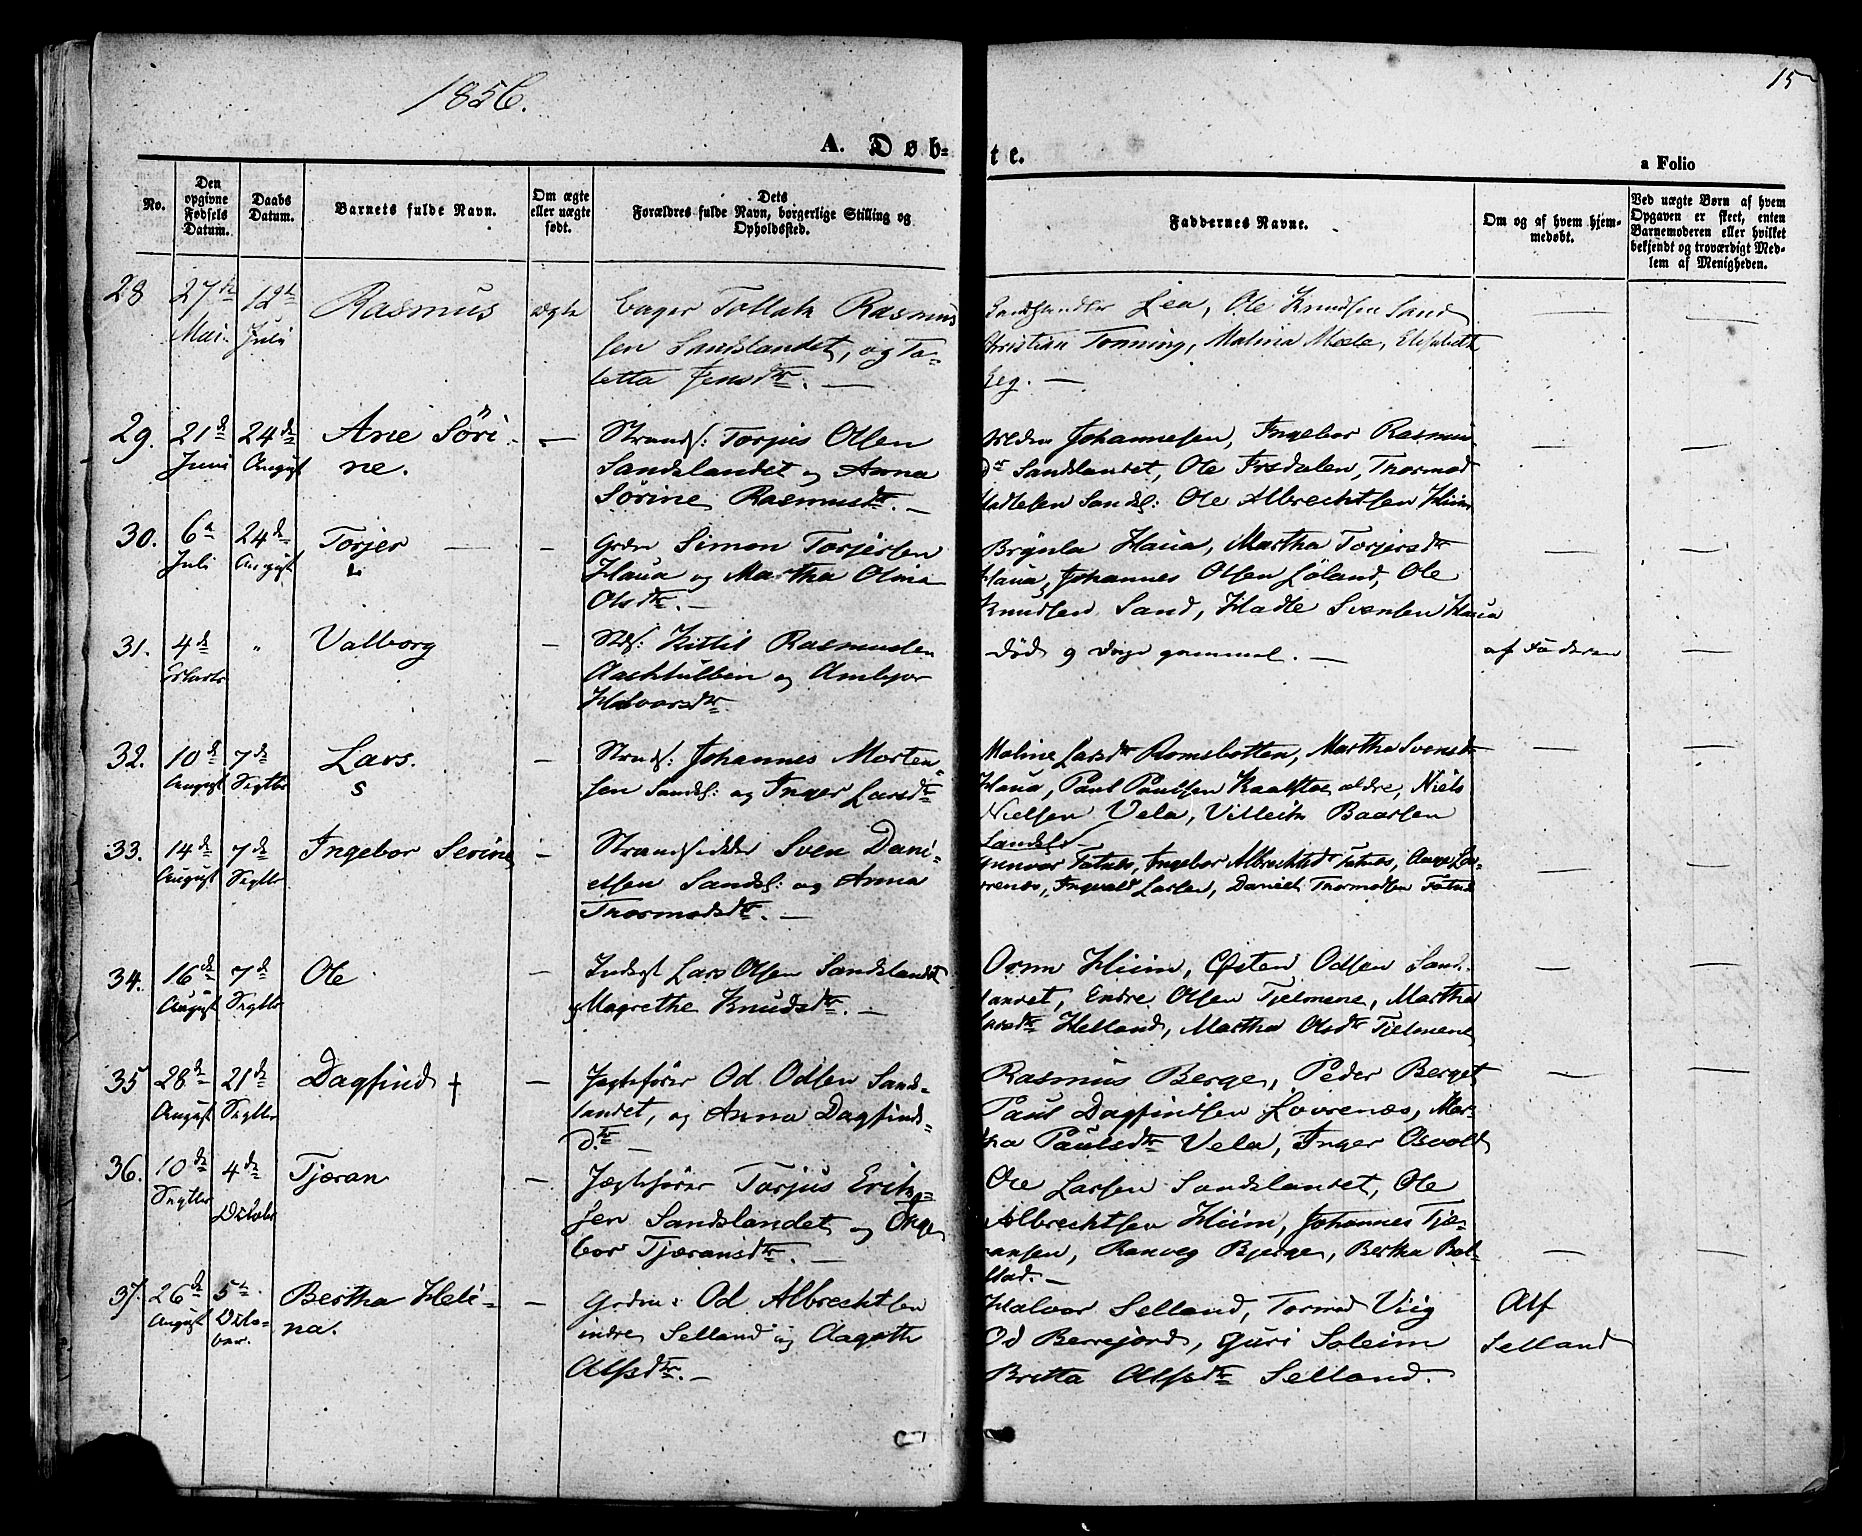 1856.
15
A. Døb-
te.
a Folio
No.
Den opgivne Fødsels Datum.
Daabs Datum.
Barnets fulde Navn.
Om ægte eller uægte født.
Dets Forældres fulde Navn, borgerlige Stilling og Opholdssted.
Faddernes Navne.
Om og af hvem hjem-
medøbt.
Ved uægte Børn af hvem
Opgaven er skeet, enten
Barnemoderen eller hvilket
bekjendt og troværdigt Med-
lem af Menigheden.
28 27de Mai. Juli Rasmus ægte Bager Tollak Rasmus
sen Sandslandet, og To-
letta Jensdtr. —
Lea, Ole Knudsen Sand
Christian Tonning, Malina Moele, Elisabeth
Eeg. —
29. 21de Juni 24de August Ane Søri-
ne. — Strands: Torjus Olsen
Sandslandet og Anna
Sørine Rasmusdtr. —
Johannesen, Ingebor Rasmus
Dtr Sandslandet, Ole Frsdalen, Thormod
Hadlesen Sandsl: Ole Albrechtsen Hiim
30. 6te Juli 24de August Torjer — Grdm Simon Torjersen
Haua og Martha Olina
Olsdtr. —
Brynla Haua, Martha Torjersdtr
Haua, Johannes Olsen Løland, Ole
Knudsen Sand, Hadle Svensen Haua
31. 4de " Valborg — Kittil Rasmusen
og Ambjor
Halvorsdtr
Død 9 Dage gammel. — af Faderen —
32. 10de August 7de Septbr Lars.
s — Strands: Johannes Morten-
sen Sandsl: og Inger Larsdtr
Maline Larsdtr Romsbotten, Martha Svensdtr
Haua, Paul Paulsen Kaalstøe ældre, Niels
Nielsen Vela, Villeik Baarsen
Landsl.
33. 14de August 7de Septbr Ingebor Serine — Strandsidder Sven Dani-
elsen Sandsl: og Anna
Thormodsdtr. —
Gunvor Fatnes, Ingebor Albrechtsdtr Fatnes,
Ingvald Larsen, Daniel Thormodsen Fatnes
34. 16de August 7de Septbr Ole — Inderst Lars Olsen Sandslandet
og Magrethe Knudsdtr. —
Orm Hiim, Østen Odsen Sands-
landet, Endre Olsen Tjelmene, Martha
Larsdtr Helland, Martha Olsdtr Tjelmene
35 28de August 21de Septbr Dagfind † — Jagtefører Od Odsen Sands-
landet, og Anna Dagfinds-
Dtr —
Rasmus Berge, Peder Berget
Paul Dagfindsen Lovrenæs, Mar-
tha Paulsdtr Vela, Inger Osvold
36. 10de Septbr 4de Octobr Tjæran — Jægtefører Torjus Erik-
sen Sandslandet og Inge
bor Tjæransdtr. —
Ole Larsen Sandslandet, Ole
Albrechtsen Hiim, Johannes Tjæ-
ransen, Ranveg Bjerge, Bertha Bol-
stad. —
37. 26de August 5te Octo-
ber. Bertha Heli-
na. — Grdm: Od Albrechtsen
indre Selland og Aagoth
Alfsdtr. —
Halvor Selland, Tormod Viig
Od Berrejord, Guri Soleim
Britta Alfsdtr Selland.
Alf
Selland